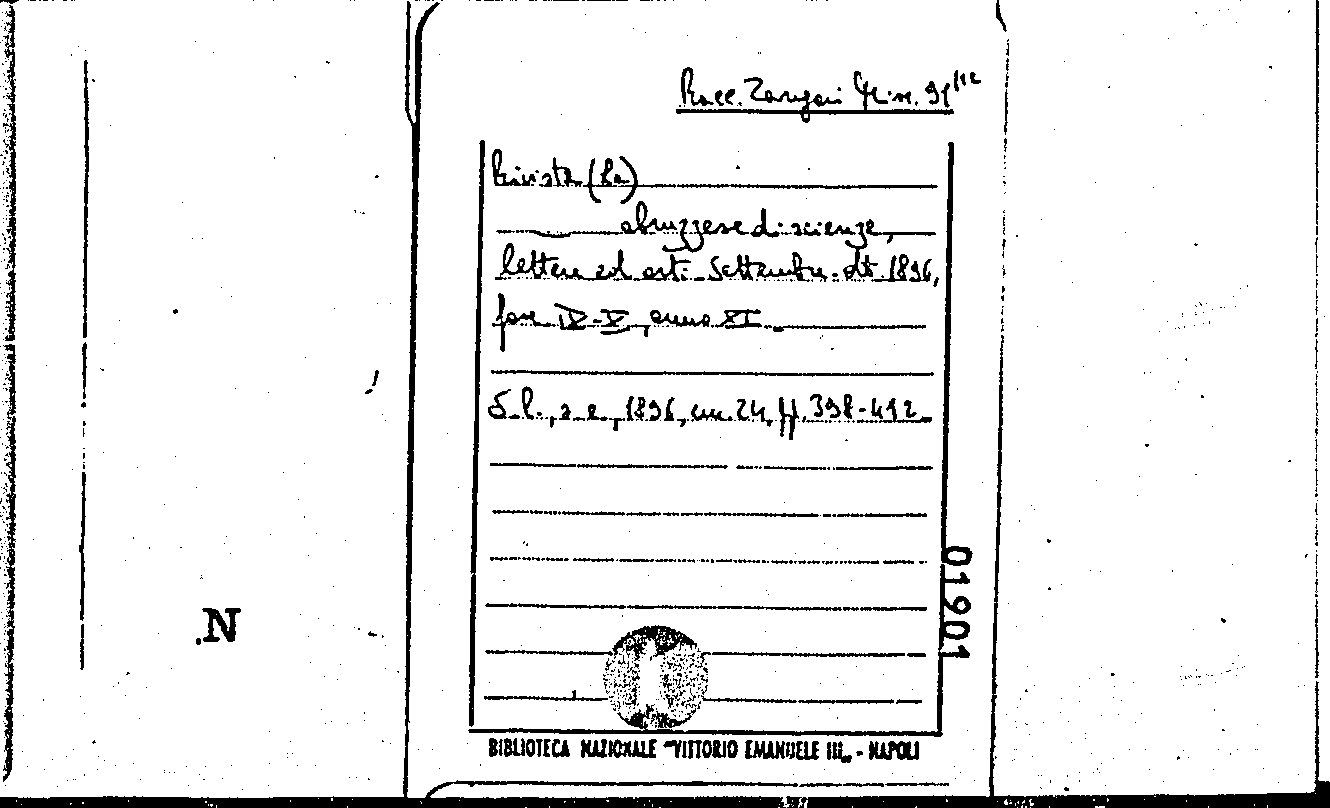 Racc. Zangari Misc. 91/12
Rivista (La)
abruzzese di scienze,
lettere ed arti. Settembre-ott. 1896,
fasc. IX-X, anno XI.
S.l., s.e., 1896, cm. 24, ff. 398-492
01901
.N
BIBLIOTECA NAZIONALE "VITTORIO EMANUELE III„ - NAPOLI